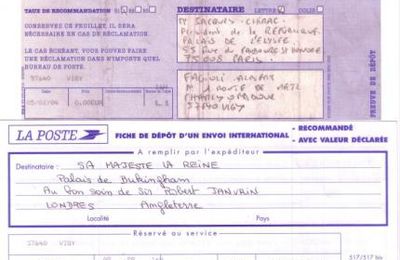 TAUX DE RECOMMANDATION :
CONSERVEZ CE FEUILLET, IL SERA
NÉCESSAIRE EN CAS DE RÉCLAMATION.
LE CAS ÉCHÉANT, VOUS POUVEZ FAIRE
UNE RÉCLAMATION DANS N'IMPORTE QUEL
BUREAU DE POSTE.
57640 VIGY
DESTINATAIRE
LETTRE
COLIS
M JACQUES CHIRAC
Président de la REPUBLIQUE
PALAIS DE L'ELYSEE
55 RUE du FAUBOURG ST HONORE
75008 PARIS
PREUVE DE DÉPÔT
LA POSTE
FICHE DE DÉPÔT D'UN ENVOI INTERNATIONAL
- RECOMMANDÉ
- AVEC VALEUR DÉCLARÉE
A remplir par l'expéditeur
Destinataire : SA MAJESTE LA REINE
Palais de Buckingham
Au bon soin de Sir Robert JANVRIN
LONDRES Angleterre
Localité Pays
Réservé au service
57640 VIGY
517/517 bis